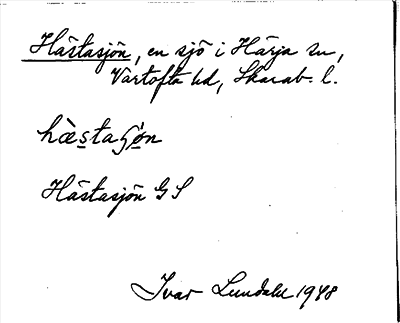 Hästasjön, en sjö i Härja sn,
Vartofta hd, Skarab. l.
hæ̀staʃø̀n
Hästasjön G S
Ivar Lundahl 1948